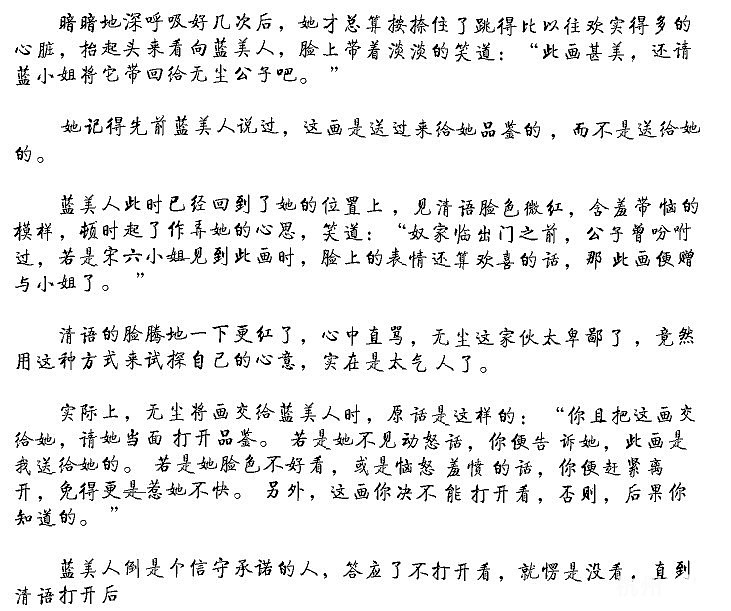 暗暗地深呼吸好几次后，她才总算按捺住了跳得比以往欢实得多的
心脏，抬起头来看向蓝美人，脸上带着淡淡的笑道：“此画甚美，还请
蓝小姐将它带回给无尘公子吧。”
她记得先前蓝美人说过，这画是送过来给她品鉴的，而不是送给她
的。
蓝美人此时已经回到了她的位置上，见清语脸色微红，含羞带恼的
模样，顿时起了作弄她的心思，笑道：“奴家临出门之前，公子曾吩咐
过，若是宋六小姐见到此画时，脸上的表情还算欢喜的话，那此画便赠
与小姐了。”
清语的脸腾地一下更红了，心中直骂，无尘这家伙太卑鄙了，竟然
用这种方式来试探自己的心意，实在是太气人了。
实际上，无尘将画交给蓝美人时，原话是这样的：“你且把这画交
给她，请她当面打开品鉴。若是她不见动怒话，你便告诉她，此画是
我送给她的。若是她脸色不好看，或是恼怒羞愤的话，你便赶紧离
开，免得更是惹她不快。另外，这画你决不能打开看，否则，后果你
知道的。”
蓝美人倒是个信守承诺的人，答应了不打开看，就愣是没看．直到
清语打开后